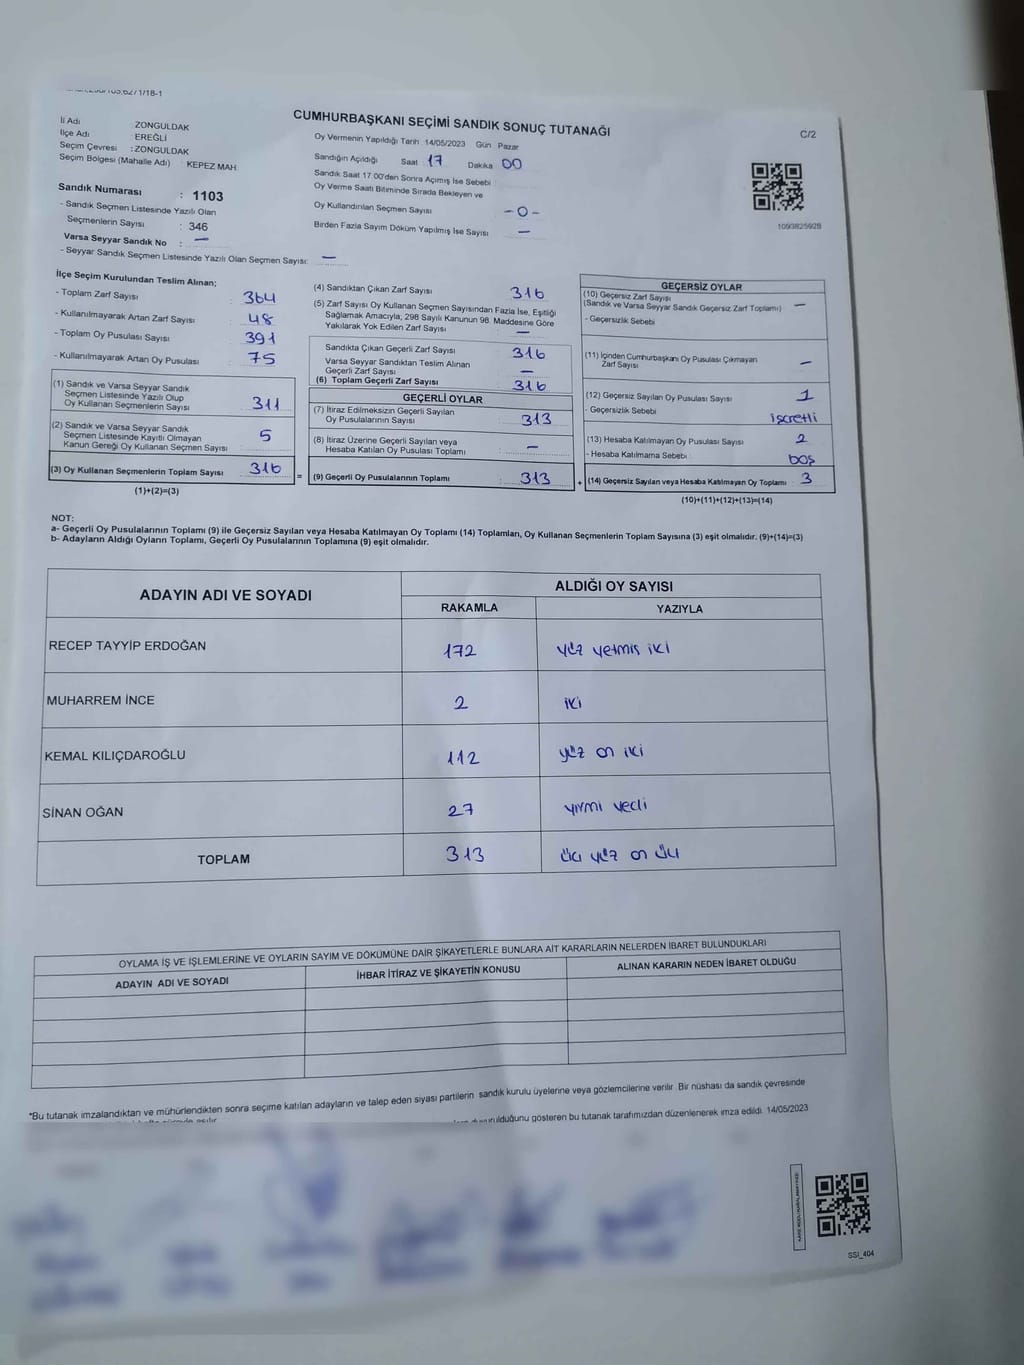 CUMHURBAŞKANI SEÇİMİ SANDIK SONUÇ TUTANAĞI
C/2
İl Adı : ZONGULDAK
İlçe Adı : EREĞLİ
Seçim Çevresi : ZONGULDAK
Seçim Bölgesi (Mahalle Adı) : KEPEZ MAH
Sandık Numarası : 1103
- Sandık Seçmen Listesinde Yazılı Olan
Seçmenlerin Sayısı : 346
Varsa Seyyar Sandık No : —
- Seyyar Sandık Seçmen Listesinde Yazılı Olan Seçmen Sayısı: —
Oy Vermenin Yapıldığı Tarih 14/05/2023 Gün Pazar
Sandığın Açıldığı Saat 17 Dakika 00
Sandık Saat 17.00'den Sonra Açımış İse Sebebi
Oy Verme Saati Bitiminde Sırada Bekleyen ve
Oy Kullandırılan Seçmen Sayısı -0-
Birden Fazla Sayım Döküm Yapılmış İse Sayısı —
1093825928
İlçe Seçim Kurulundan Teslim Alınan;
- Toplam Zarf Sayısı : 364
- Kullanılmayarak Artan Zarf Sayısı : 48
- Toplam Oy Pusulası Sayısı : 391
- Kullanılmayarak Artan Oy Pusulası : 75
(1) Sandık ve Varsa Seyyar Sandık
Seçmen Listesinde Yazılı Olup
Oy Kullanan Seçmenlerin Sayısı : 311
(2) Sandık ve Varsa Seyyar Sandık
Seçmen Listesinde Kayıtlı Olmayan
Kanun Gereği Oy Kullanan Seçmen Sayısı : 5
(3) Oy Kullanan Seçmenlerin Toplam Sayısı : 316
(1)+(2)=(3)
(4) Sandıktan Çıkan Zarf Sayısı 316
(5) Zarf Sayısı Oy Kullanan Seçmen Sayısından Fazla İse, Eşitliği
Sağlamak Amacıyla; 298 Sayılı Kanunun 98. Maddesine Göre
Yakılarak Yok Edilen Zarf Sayısı : —
Sandıkta Çıkan Geçerli Zarf Sayısı 316
Varsa Seyyar Sandıktan Teslim Alınan
Geçerli Zarf Sayısı —
(6) Toplam Geçerli Zarf Sayısı 316
GEÇERLİ OYLAR
(7) İtiraz Edilmeksizin Geçerli Sayılan
Oy Pusulalarının Sayısı : 313
(8) İtiraz Üzerine Geçerli Sayılan veya
Hesaba Katılan Oy Pusulası Toplamı : —
= (9) Geçerli Oy Pusulalarının Toplamı : 313
GEÇERSİZ OYLAR
(10) Geçersiz Zarf Sayısı
(Sandık ve Varsa Seyyar Sandık Geçersiz Zarf Toplamı) —
- Geçersizlik Sebebi
(11) İçinden Cumhurbaşkanı Oy Pusulası Çıkmayan
Zarf Sayısı —
(12) Geçersiz Sayılan Oy Pusulası Sayısı 1
- Geçersizlik Sebebi işcretli
(13) Hesaba Katılmayan Oy Pusulası Sayısı 2
- Hesaba Katılmama Sebebi boş
+ (14) Geçersiz Sayılan veya Hesaba Katılmayan Oy Toplamı : 3
(10)+(11)+(12)+(13)=(14)
NOT:
a- Geçerli Oy Pusulalarının Toplamı (9) ile Geçersiz Sayılan veya Hesaba Katılmayan Oy Toplamı (14) Toplamları, Oy Kullanan Seçmenlerin Toplam Sayısına (3) eşit olmalıdır. (9)+(14)=(3)
b- Adayların Aldığı Oyların Toplamı, Geçerli Oy Pusulalarının Toplamına (9) eşit olmalıdır.
ADAYIN ADI VE SOYADI
ALDIĞI OY SAYISI
RAKAMLA YAZIYLA
RECEP TAYYİP ERDOĞAN 172 yüz yetmiş iki
MUHARREM İNCE 2 iki
KEMAL KILIÇDAROĞLU 112 yüz on iki
SİNAN OĞAN 27 yirmi yedi
TOPLAM 313 üç yüz on üç
OYLAMA İŞ VE İŞLEMLERİNE VE OYLARIN SAYIM VE DÖKÜMÜNE DAİR ŞİKAYETLERLE BUNLARA AİT KARARLARIN NELERDEN İBARET BULUNDUKLARI
ADAYIN ADI VE SOYADI İHBAR İTİRAZ VE ŞİKAYETİN KONUSU ALINAN KARARIN NEDEN İBARET OLDUĞU
*Bu tutanak imzalandıktan ve mühürlendikten sonra seçime katılan adayların ve talep eden siyasi partilerin sandık kurulu üyelerine veya gözlemcilerine verilir. Bir nüshası da sandık çevresinde
gösteren bu tutanak tarafımızdan düzenlenerek imza edildi. 14/05/2023
SSİ_404